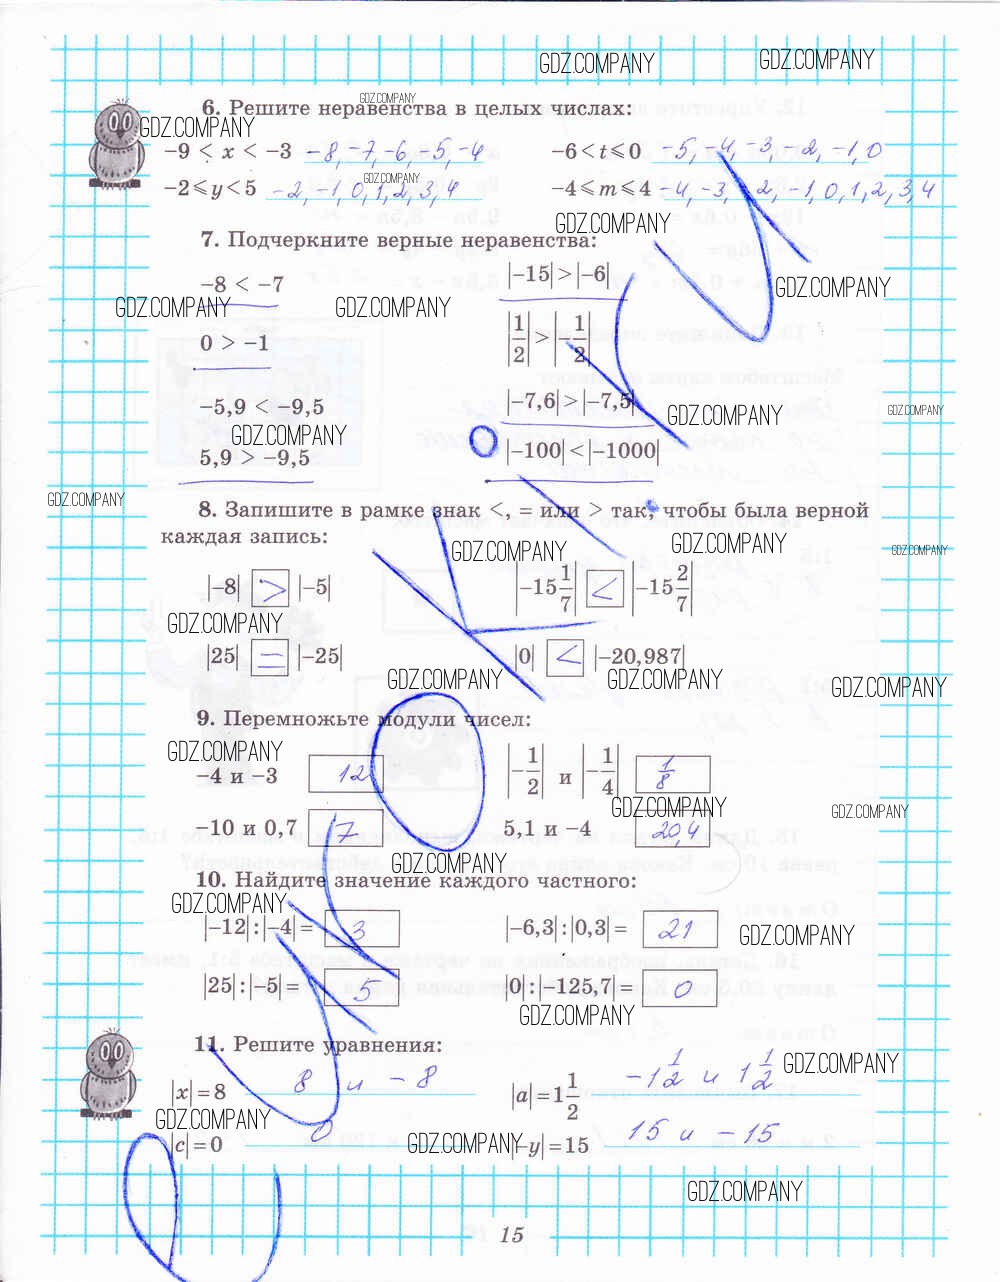 GDZ.COMPANY GDZ.COMPANY
GDZ.COMPANY
6. Решите неравенства в целых числах:
GDZ.COMPANY
−9 < x < −3 −8, −7, −6, −5, −4 −6 < t ⩽ 0 −5, −4, −3, −2, −1, 0
GDZ.COMPANY
−2 ⩽ y < 5 −2, −1, 0, 1, 2, 3, 4 −4 ⩽ m ⩽ 4 −4, −3, −2, −1, 0, 1, 2, 3, 4
GDZ.COMPANY
7. Подчеркните верные неравенства:
−8 < −7 |−15| > |−6|
GDZ.COMPANY GDZ.COMPANY GDZ.COMPANY
0 > −1 |1/2| > |−1/2|
−5,9 < −9,5 |−7,6| > |−7,5|
GDZ.COMPANY GDZ.COMPANY GDZ.COMPANY
5,9 > −9,5 |−100| < |−1000|
GDZ.COMPANY
8. Запишите в рамке знак <, = или > так, чтобы была верной
каждая запись:
GDZ.COMPANY GDZ.COMPANY GDZ.COMPANY
|−8| > |−5| |−15 1/7| < |−15 2/7|
GDZ.COMPANY
|25| = |−25| |0| < |−20,987|
GDZ.COMPANY GDZ.COMPANY GDZ.COMPANY
9. Перемножьте модули чисел:
GDZ.COMPANY
−4 и −3 12 |−1/2| и |−1/4| 1/8
GDZ.COMPANY GDZ.COMPANY
−10 и 0,7 7 5,1 и −4 20,4
GDZ.COMPANY
10. Найдите значение каждого частного:
GDZ.COMPANY
|−12| : |−4| = 3 |−6,3| : |0,3| = 21
GDZ.COMPANY
|25| : |−5| = 5 |0| : |−125,7| = 0
GDZ.COMPANY
11. Решите уравнения:
GDZ.COMPANY
|x| = 8 8 и −8 |a| = 1 1/2 −1 1/2 и 1 1/2
GDZ.COMPANY
|c| = 0 0 |−y| = 15 15 и −15
GDZ.COMPANY
GDZ.COMPANY
15